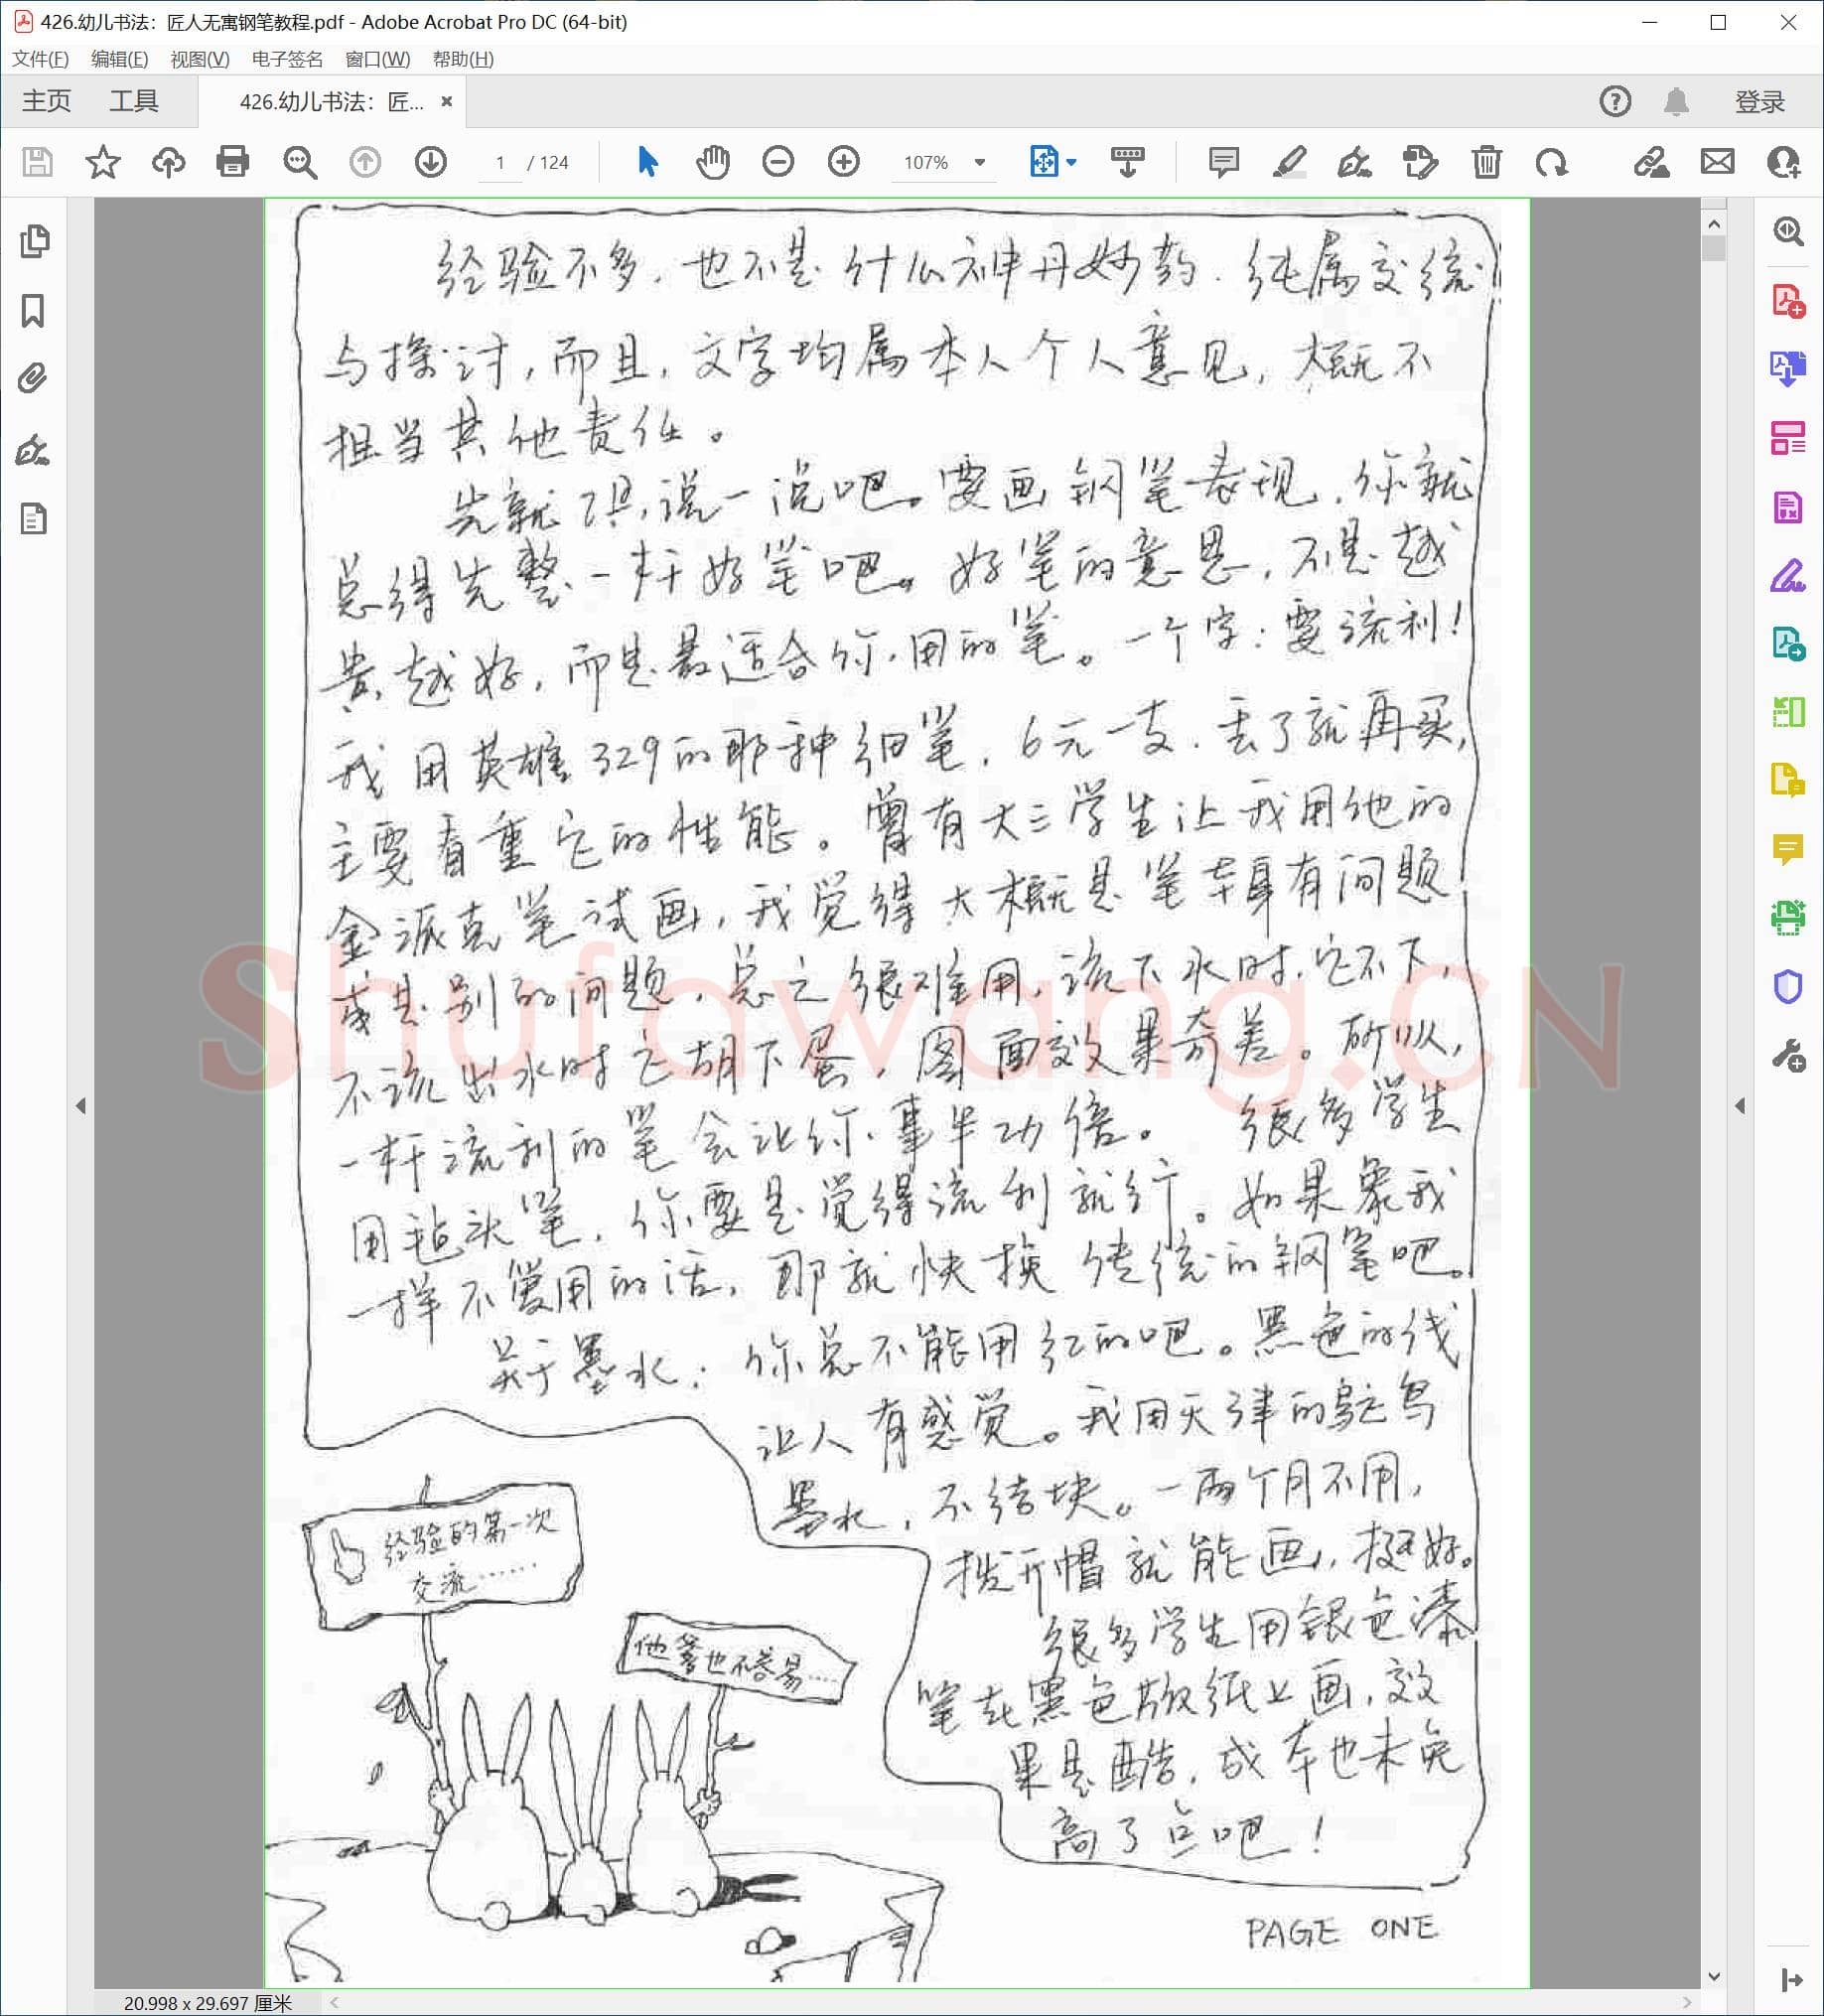 426.幼儿书法：匠人无寓钢笔教程.pdf - Adobe Acrobat Pro DC (64-bit)
文件(F) 编辑(E) 视图(V) 电子签名 窗口(W) 帮助(H)
主页 工具 426.幼儿书法：匠... × 登录
1 / 124 107%
经验不多，也不是什么神丹妙药．纯属交流
与探讨，而且，文字均属本人个人意见，大概不
担当其他责任。
先就工具，说一说吧。要画钢笔表现，你就
总得先整一杆好笔吧。好笔的意思，不是越
贵越好，而是最适合你用的笔。一个字：要流利！
我用英雄329的那种细笔，6元一支．丢了就再买，
主要看重它的性能。曾有大三学生让我用他的
金派克笔试画，我觉得大概是笔本身有问题
或是别的问题，总之很难用，该下水时，它不下，
不该出水时它胡下蛋，图面效果奇差。所以，
一杆流利的笔会让你事半功倍。 很多学生
用毡头笔，你要是觉得流利就行。如果象我
一样不爱用的话，那就快换传统的钢笔吧。
关于墨水：你总不能用红的吧。黑色的线
让人有感觉。我用天津的鸵鸟
墨水，不结块。一两个月不用，
拔开帽就能画，挺好。
很多学生用银色漆
笔在黑色硫纸上画，效
果是酷，成本也未免
高了点吧！
经验的第一次
交流……
他爹也不容易……
PAGE ONE
Shufawang.CN
20.998 x 29.697 厘米